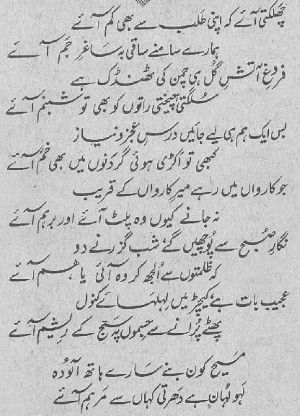 چھلکتی آئے کہ اپنی طلب سے بھی کم آئے
ہمارے سامنے ساقی بہ ساغرِ جم آئے
فروغِ آتشِ گل ہی چمن کی ٹھنڈک ہے
سلگتی چیختی راتوں کو بھی تو شبنم آئے
بس ایک ہم ہی لیے جائیں درسِ عجز و نیاز
کبھی تو اکڑی ہوئی گردنوں میں بھی خم آئے
جو کارواں میں رہے میرِ کارواں کے قریب
نہ جانے کیوں وہ پلٹ آئے اور برہم آئے
نگارِ صبح سے پوچھیں گے شب گزرنے دو
کہ ظلمتوں سے الجھ کر وہ آئی یا ہم آئے
عجیب بات ہے کیچڑ میں لہلہائے کنول
پھٹے پرانے سے جسموں پہ سج کے ریشم آئے
مسیح کون بنے سارے ہاتھ آلودہ
لہو لہان ہے دھرتی کہاں سے مرہم آئے